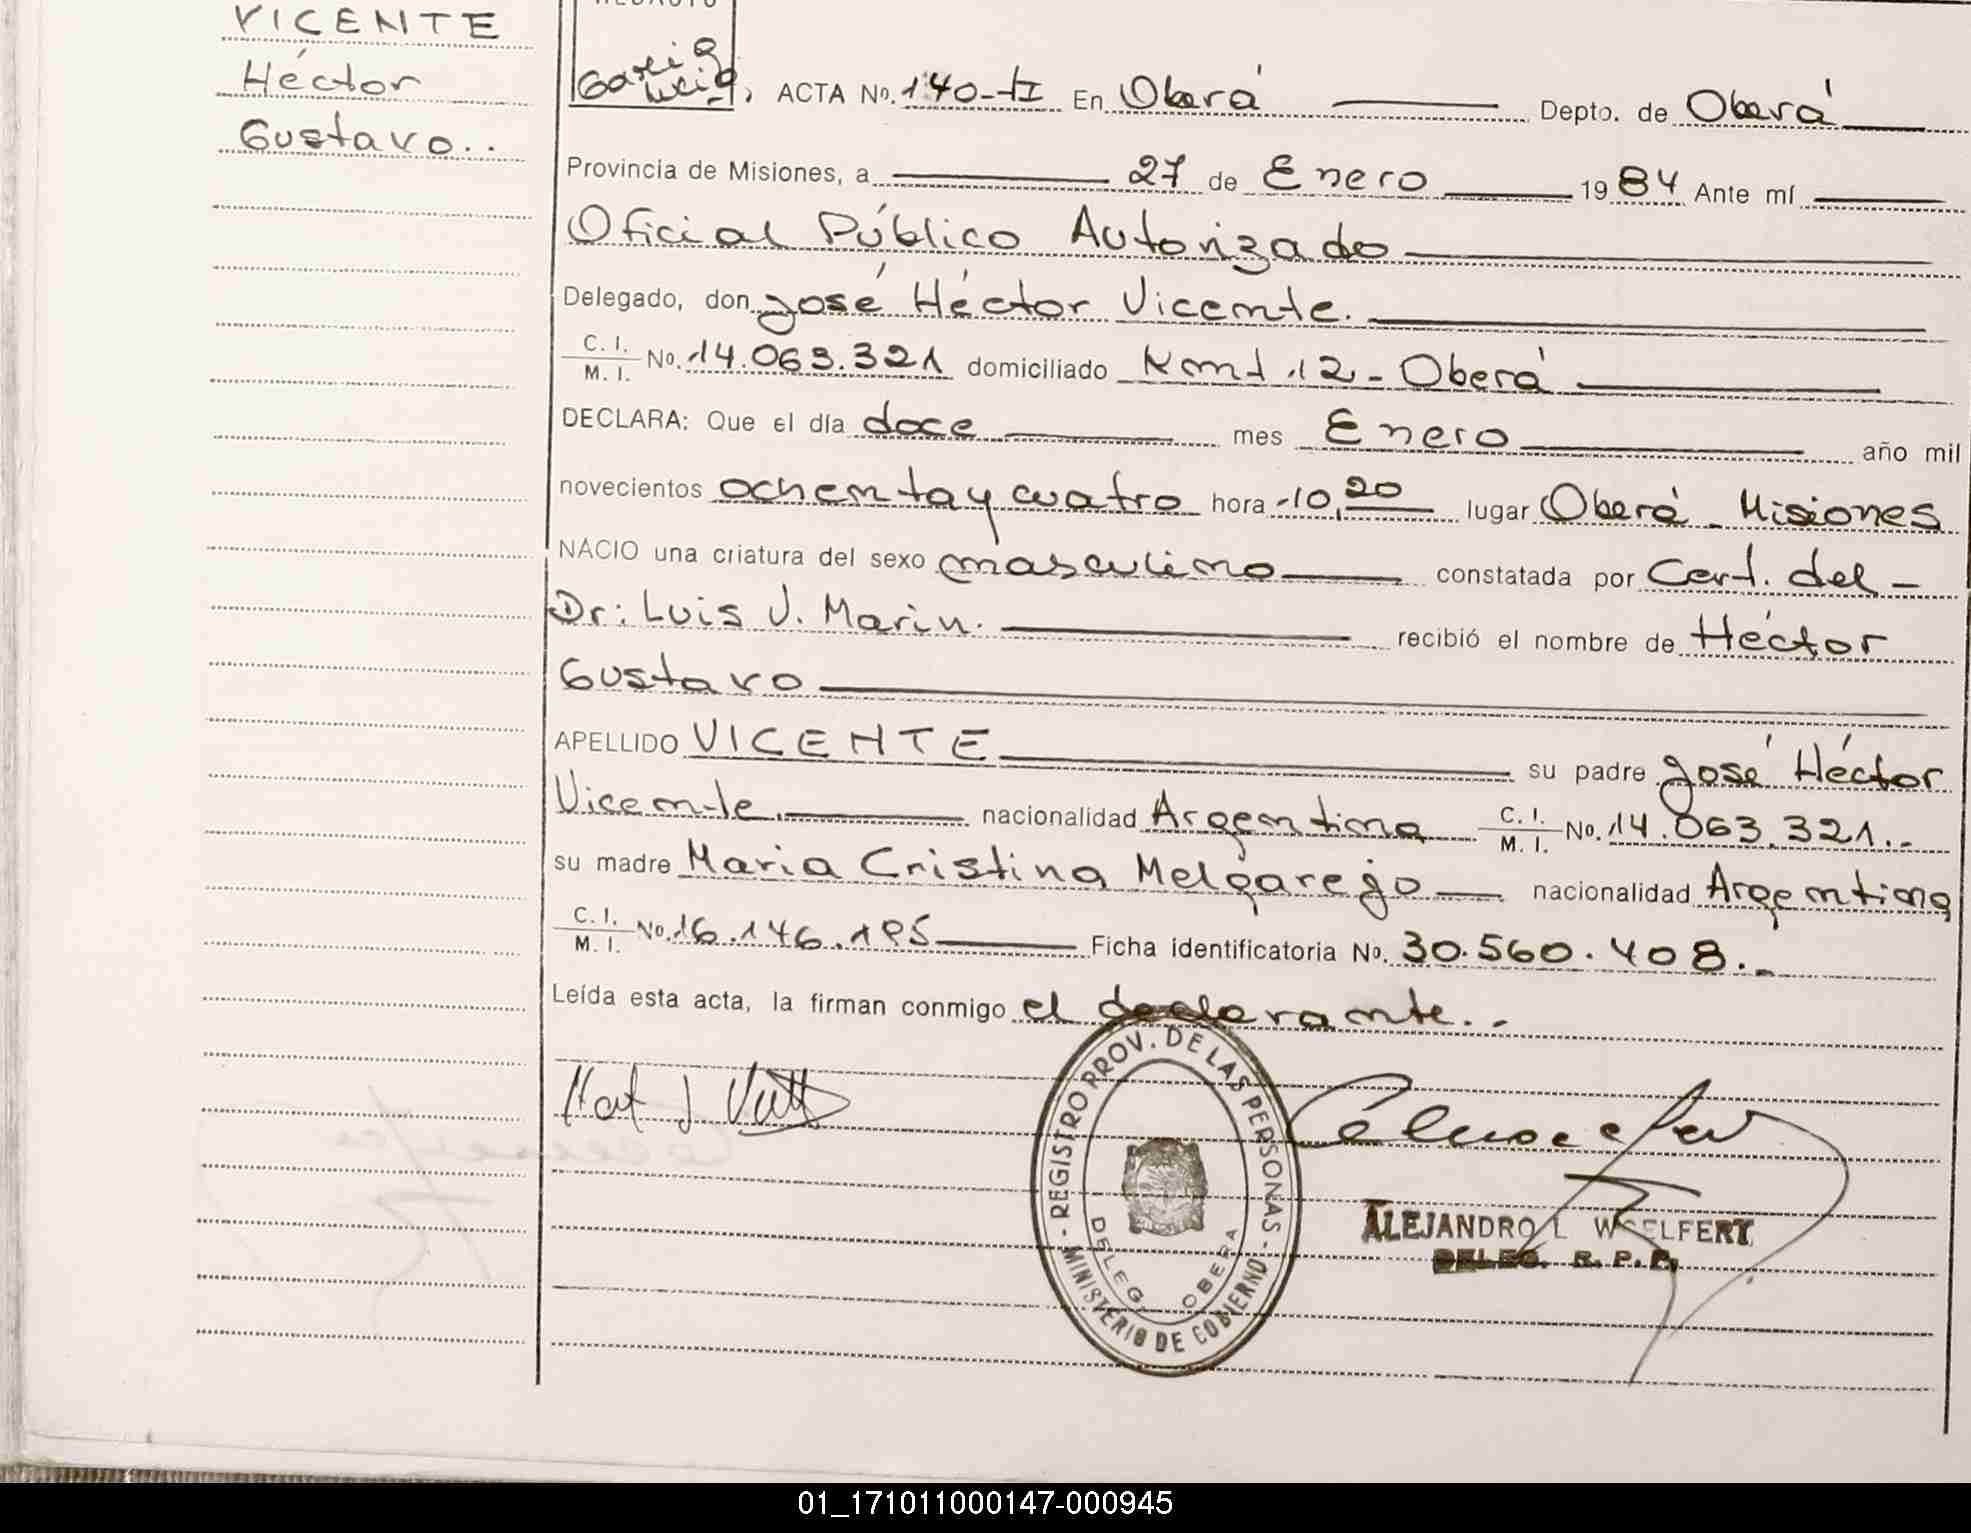 VICENTE
Héctor
Gustavo..
ACTA No. 140-tI En Oberá Depto. de Oberá
Provincia de Misiones, a 27 de Enero 1984 Ante mí
Oficial Público Autorizado
Delegado, don José Héctor Vicente.
C. I. / M. I. No. 14.063.321 domiciliado Kmt .12 - Oberá
DECLARA: Que el día doce mes Enero año mil
novecientos ochenta y cuatro hora 10,20 lugar Oberá - Misiones
NACIO una criatura del sexo masculino constatada por Cert. del -
Dr: Luis J. Marin. recibió el nombre de Héctor
Gustavo
APELLIDO VICENTE su padre José Héctor
Vicente. nacionalidad Argentina C. I. / M. I. No. 14.063.321.-
su madre Maria Cristina Melgarejo nacionalidad Argentina
C. I. / M. I. No. 16.146.195 Ficha identificatoria No. 30.560.408.-
Leída esta acta, la firman conmigo el declarante..
REGISTRO PROV. DE LAS PERSONAS - MINISTERIO DE GOBIERNO -
DELEG. OBERA
ALEJANDRO L WOELFERT
DELEG. R. P. P.
01_171011000147-000945